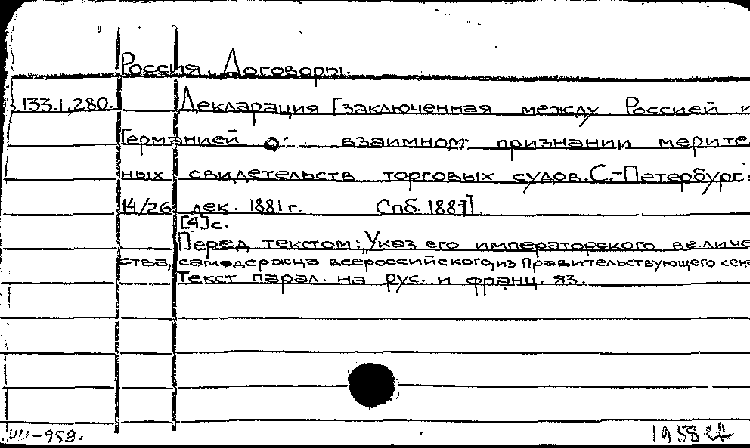 Россия. Договоры.
133.1.280. Декларация [заключенная между Россией и
Германией о взаимном признании мерите
ных свидетельств торговых судов. С.-Петербург.
14/26 дек. 1881 г. Спб. 1881].
[4]с.
Перед текстом: Указ его императорского величе
ства, самодержца всероссийского, из Правительствующего сен
Текст парал. на рус. и франц. яз.
1958